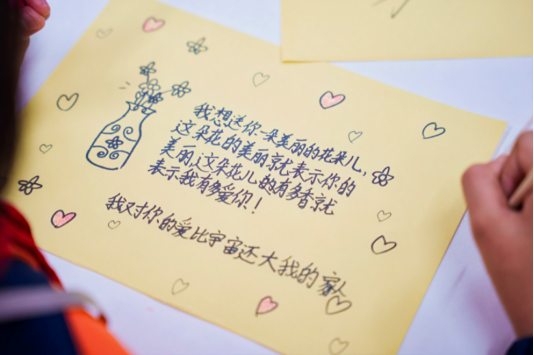 我想送你一朵美丽的花朵儿,
这朵花的美丽就表示你的
美丽,这朵花儿的有多香就
表示我有多爱你!
我对你的爱比宇宙还大我的家人